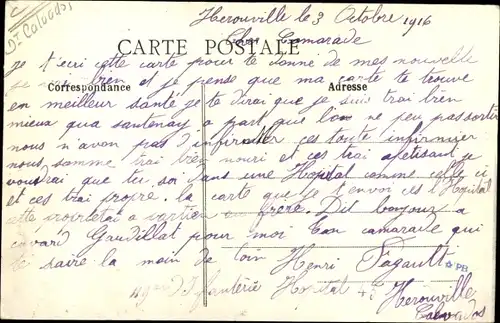 Dt Calvados
Herouville le 3 Octobre 1916
CARTE POSTALE
Cher Camarade
je t'ecri cette carte pour te donne de mes nouvelle
ren et je pense que ma carte te trouve
Correspondance
Adresse
en meilleur santé je te dirai que je suis trai bien
mieux qua santenay a part que l'on ne peu pas sortir
nous n'avon pas d'infirmier ces toute infirmier
nous somme trai bien nouri et ces trai apetisant je
voudrai que tu soi dans une Hopital comme celle ci
et ces trai propre. la carte que je t'envoi ces l'Hopital
cette frere. Dit bonjour a
Gaudillat pour moi ton camarade qui
te saire la main de loin Henri Fagault
PB
d'Infanterie Hopital 43 Herouville
Calvados